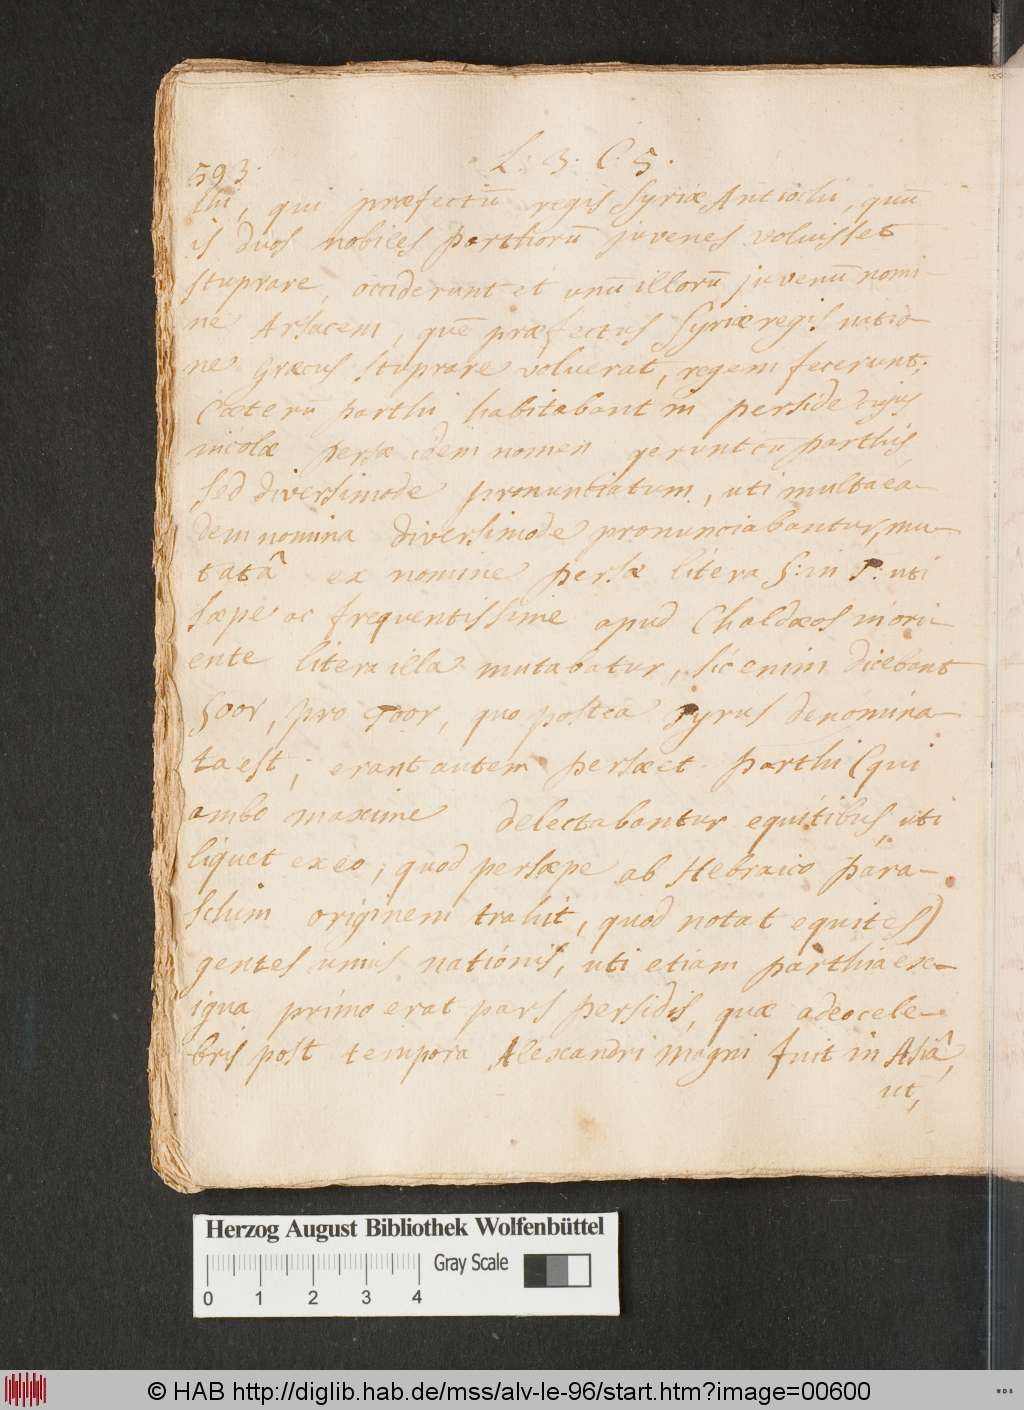 593. L: 3. C. 5.
thi, qui præfectū regis Syriæ Antiochi, quū
is duos nobiles parthorū juvenes voluisset
stuprare, occiderunt et unū illorū juvenū nomi-
ne Arsacem, quē præfectus Syriæ regis natio-
ne Græcus stuprare voluerat, regem fecerunt;
Cæterū parthi habitabant in perside cujus
incolæ persæ idem nomen gerunt cū parthis
sed diversimode pronuntiatum, uti multa ea-
dem nomina diversimode pronunciabantur, mu-
tatâ ex nomine persæ litera S: in T: uti
sæpe ac frequentissime apud Chaldæos in ori-
ente litera illa mutabatur, sic enim dicebant
Soor, pro Toor, quo postea Tyrus denomina-
ta est; erant autem persæ et parthi (qui
ambo maxime delectabantur equitibus, uti
liquet ex eo, quod persæpe ab Hebraico Para-
schim originem trahit, quod notat equites)
gentes unius nationis, uti etiam parthia ex-
igua primo erat pars persidis, quæ adeo cele-
bris post tempora Alexandri magni fuit in Asiâ,
ut,
Herzog August Bibliothek Wolfenbüttel
Gray Scale
0 1 2 3 4
© HAB http://diglib.hab.de/mss/alv-le-96/start.htm?image=00600